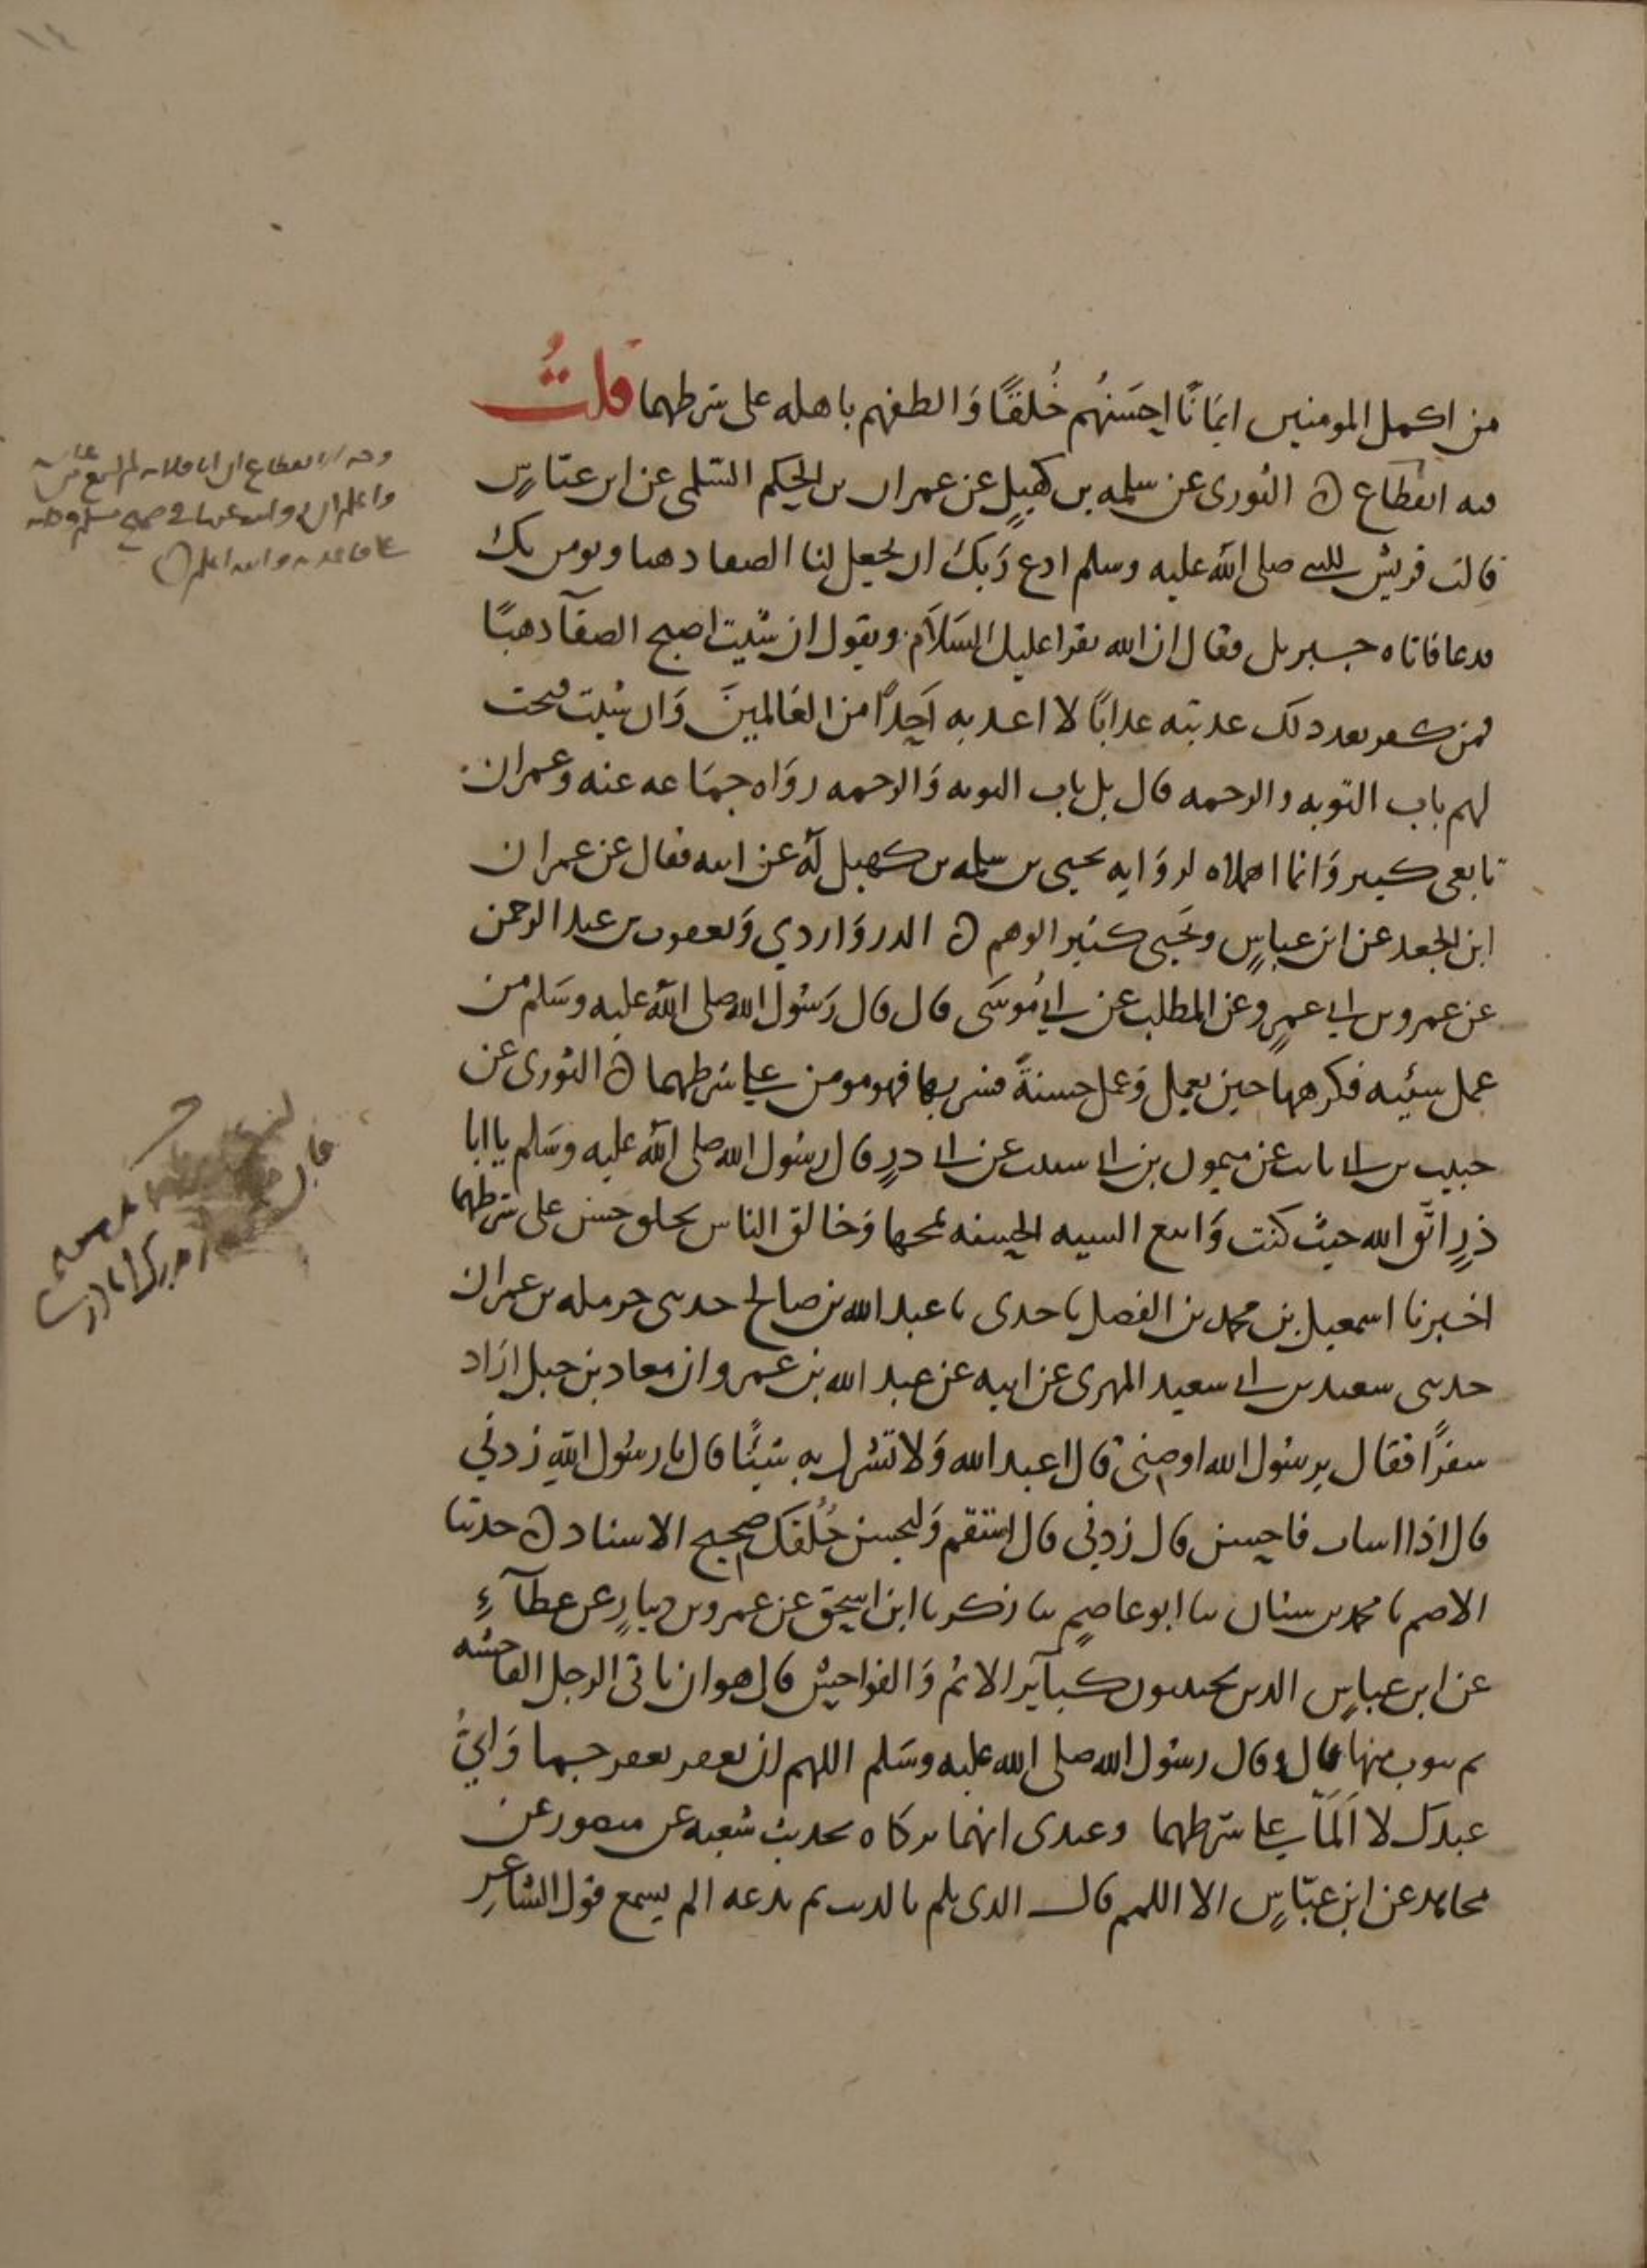 من اكمل المومنين ايمَانًا احسَنُهم خُلقًا وَالطفهم باهله على شرطهما قلتُ
فيه انقطاع ه الثورى عن سلمه بن كهيلٍ عن عمران بن الحكم السّلمى عن ابن عبّاسٍ
قالت قريش للنبي صلى الله عليه وسلم ادع رَبكَ ان يجعل لنا الصفا ذهبا ونومن بك
فدعا فاتاه جبريل فقال ان الله يقرا عليك السَلاَم ويقول ان شيت اصبح الصفآ ذهبًا
فمن كفر بعد ذلك عذبته عذابًا لا اعذبه اَحدًا من العَالمينَ وَان شيت فتحت
لهم باب التوبه والرحمه قال بل باب التوبه وَالرحمه روَاه جمَاعه عنه وعمران
تابعى كبير وَانما اهملاه لروَايه يحيى بن سلمه بن كهيل لَهُ عن ابيه فقال عن عمران
ابن الجعد عن ابن عباسٍ ويَحيى كثير الوهم ه الدروَاردي وَيعقوب بن عبد الرحمن
عن عمرو بن ابي عمرٍو عن المطلب عن ابي مُوسَى قال قال رَسُول الله صلى الله عليه وسَلم من
عمل سيئه فكرهها حين يعمل وَعمل حسنةً فسر بها فهو مومن على شرطهما ه الثورى عن
حبيب بن ابى ثابت عن ميمون بن ابى شبيب عن ابى ذرٍ قال رسُول الله صلى الله عليه وسَلم يا ابا
ذرٍ اتّق الله حيثُ كنت وَاتبع السيه الحسنه تمحها وَخالق الناس بخلق حسن على شرطهما
اخبرنا اسمعيل بن محمد بن الفضل نا جدى نا عبد الله بن صالح حدثنى حرمله بن عمران
حدثنى سعيد بن ابى سعيد المهرى عن ابيه عن عبد الله بن عمرو ان معاذ بن جبل ارَاد
سفرًا فقال يرسُول الله اوصنى قال اعبد الله وَلا تشرك به شيئًا قال يا رسُول اللهِ زدني
قال اذا اسات فاحسن قال زدني قال استقم وَليحسن خُلُقك صحيح الاسناد ه حدثنا
الاصم نا محمد بن سنان نا ابو عاصمٍ نا زكريا ابن اسحق عن عمرو بن دينارٍ عن عطآءٍ
عن ابن عباسٍ الذين يجتنبون كبآير الاثم وَالفواحش قال هو ان ياتى الرجل الفاحشه
ثم يتوب منها قال وقال رسُول الله صلى الله عليه وسَلم اللهم ان تغفر تغفر جما وَايُّ
عبدك لا اَلَمّا على شرطهما وعندى انهما تركاه لحديث شعبه عن منصور عن
مجاهد عن ابن عبّاسٍ الا اللمم قال الذى يلم بالذنب ثم يدعه الم يسمع قول الشاعرِ
وجه الانقطاع ان ابا قلابه لم يسمع من عائشه